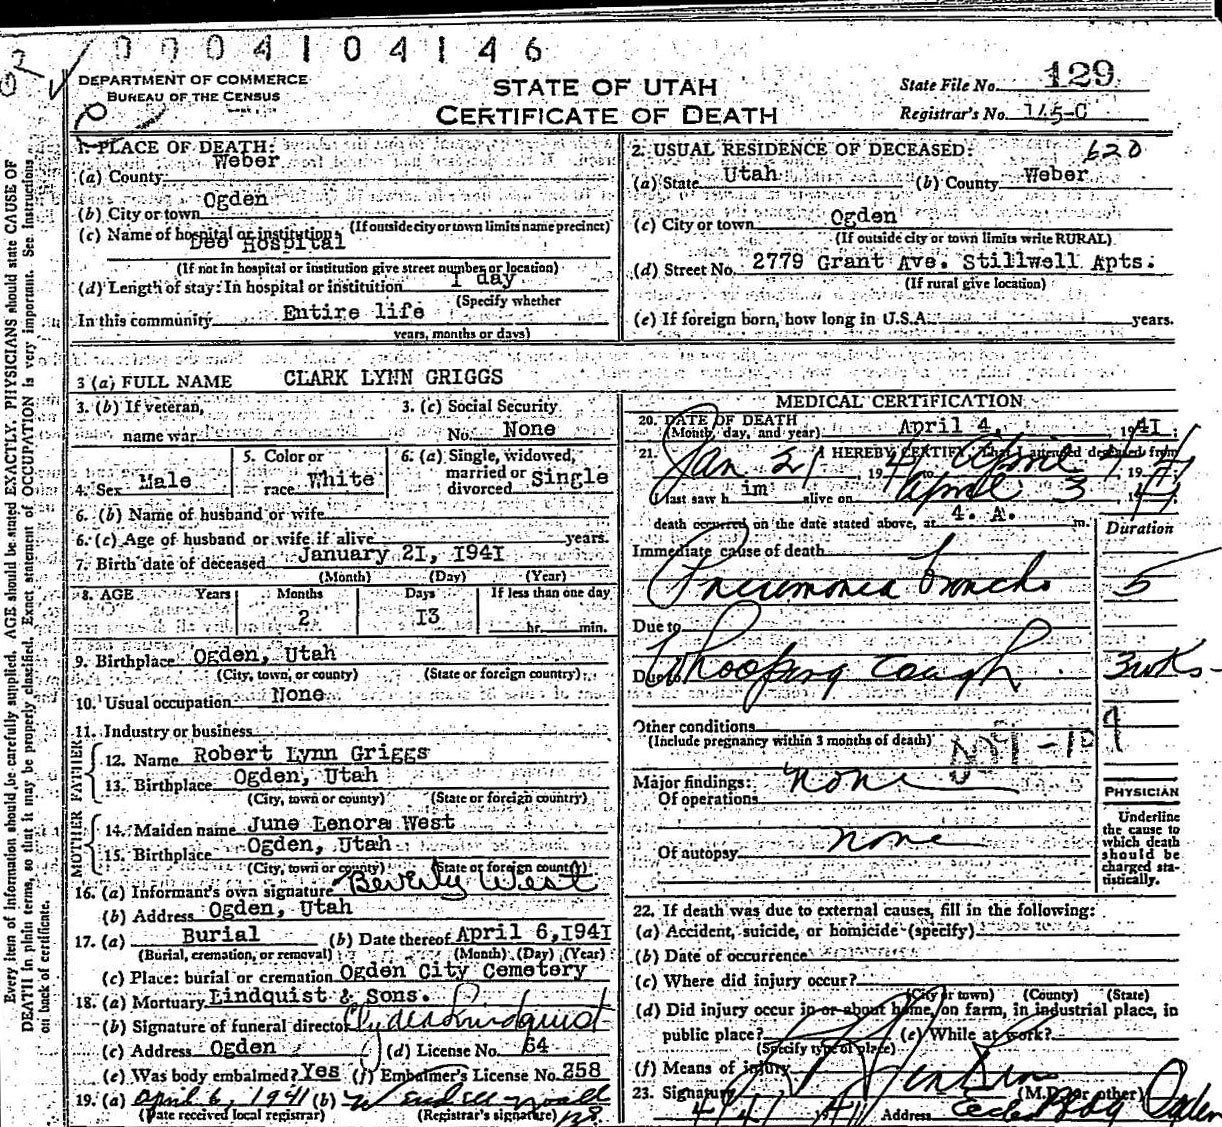 0004104146
DEPARTMENT OF COMMERCE
BUREAU OF THE CENSUS
STATE OF UTAH
CERTIFICATE OF DEATH
State File No. 129
Registrar's No. 145-C
1. PLACE OF DEATH:
(a) County Weber
(b) City or town Ogden
(If outside city or town limits name precinct)
(c) Name of hospital or institution: Dee Hospital
(If not in hospital or institution give street number or location)
(d) Length of stay: In hospital or institution 1 day
(Specify whether
In this community Entire life
years, months or days)
2. USUAL RESIDENCE OF DECEASED: 620
(a) State Utah (b) County Weber
(c) City or town Ogden
(If outside city or town limits write RURAL)
(d) Street No. 2779 Grant Ave. Stillwell Apts.
(If rural give location)
(e) If foreign born, how long in U.S.A. years.
3 (a) FULL NAME CLARK LYNN GRIGGS
3. (b) If veteran, name war
3. (c) Social Security No. None
4. Sex Male
5. Color or race White
6. (a) Single, widowed, married or divorced Single
6. (b) Name of husband or wife
6. (c) Age of husband or wife if alive years.
7. Birth date of deceased January 21, 1941
(Month) (Day) (Year)
8. AGE Years Months 2 Days 13 If less than one day hr. min.
9. Birthplace Ogden, Utah
(City, town, or county) (State or foreign country)
10. Usual occupation None
11. Industry or business
FATHER
12. Name Robert Lynn Griggs
13. Birthplace Ogden, Utah
(City, town or county) (State or foreign country)
MOTHER
14. Maiden name June Lenora West
15. Birthplace Ogden, Utah
(City, town or county) (State or foreign country)
16. (a) Informant's own signature Beverly West
(b) Address Ogden, Utah
17. (a) Burial (b) Date thereof April 6, 1941
(Burial, cremation, or removal) (Month) (Day) (Year)
(c) Place: burial or cremation Ogden City Cemetery
18. (a) Mortuary Lindquist & Sons.
(b) Signature of funeral director Clyde Lindquist
(c) Address Ogden (d) License No. 64
(e) Was body embalmed? Yes (f) Embalmer's License No. 258
19. (a) April 6, 1941 (b)
(Date received local registrar) (Registrar's signature)
MEDICAL CERTIFICATION
20. DATE OF DEATH
(Month, day, and year) April 4, 1941
21. I HEREBY CERTIFY, That I attended deceased from
Jan 21 1941 to April 4 1941
I last saw him alive on April 3 1941
death occurred on the date stated above, at 4. A. m.
Duration
Immediate cause of death
Pneumonia broncho 5
Due to
Due to Whooping cough 3 wks-
Other conditions
(Include pregnancy within 3 months of death)
9
Major findings:
Of operations none
Of autopsy none
PHYSICIAN
Underline the cause to which death should be charged statistically.
22. If death was due to external causes, fill in the following:
(a) Accident, suicide, or homicide (specify)
(b) Date of occurrence
(c) Where did injury occur?
(City or town) (County) (State)
(d) Did injury occur in or about home, on farm, in industrial place, in
public place? (e) While at work?
(Specify type of place)
(f) Means of injury
23. Signature (M.D. or other)
Address Eccles Bldg Ogden
Every item of information should be carefully supplied. AGE should be stated EXACTLY. PHYSICIANS should state CAUSE OF
DEATH in plain terms, so that it may be properly classified. Exact statement of OCCUPATION is very important. See instructions
on back of certificate.